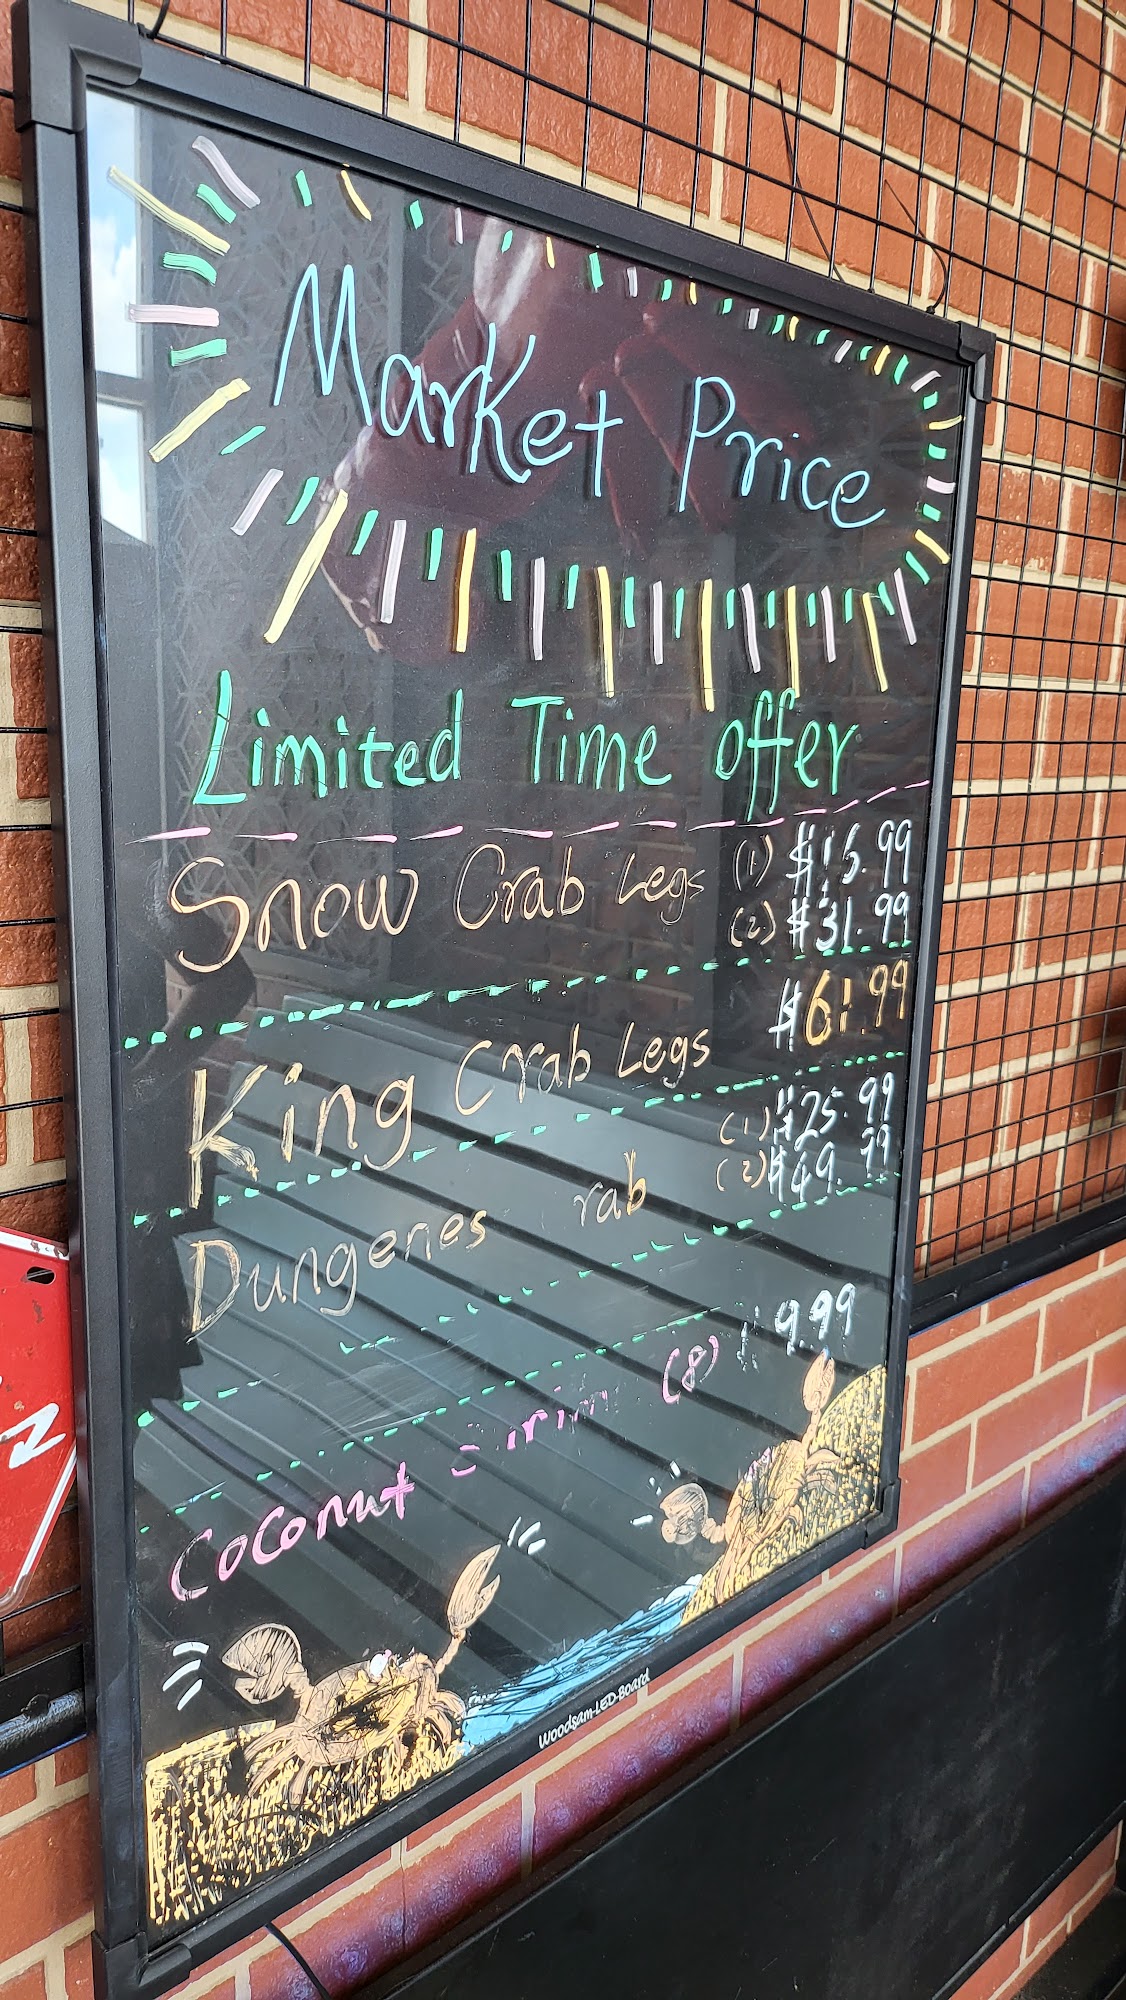 Market Price
Limited Time offer
Snow Crab Legs (1) $16.99
(2) $31.99
King Crab Legs $61.99
Dungenes rab (1) $25.99
(2) $49.99
Coconut (8) 9.99
Woodsam-LED-Board